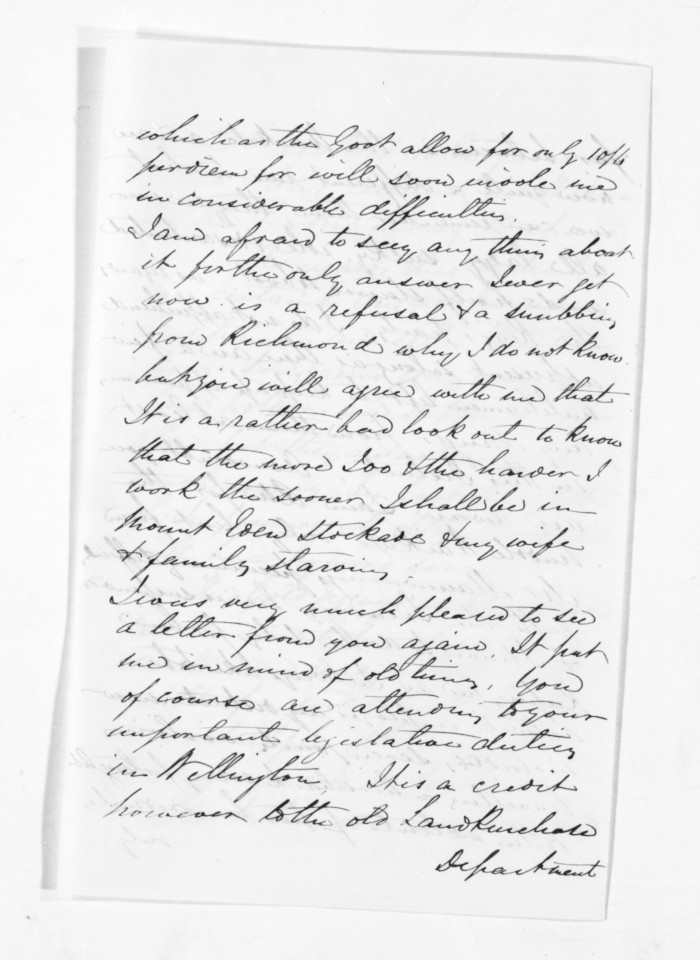 which as the Govt allow for only 10/6
per diem for will soon invole me
in considerable difficulties.
I am afraid to say any thing about
it for the only answer I ever get
now is a refusal & a snubbing
from Richmond why I do not know
but you will agree with me that
It is a rather bad look out to know
that the more I do & the harder I
work the sooner I shall be in
Mount Eden Stockade & my wife
& family starving
I was very much pleased to see
a letter from you again. It put
me in mind of old times. You
of course are attending to your
important legislative duties
in Wellington. It is a credit
however to the old Land Purchase
Department